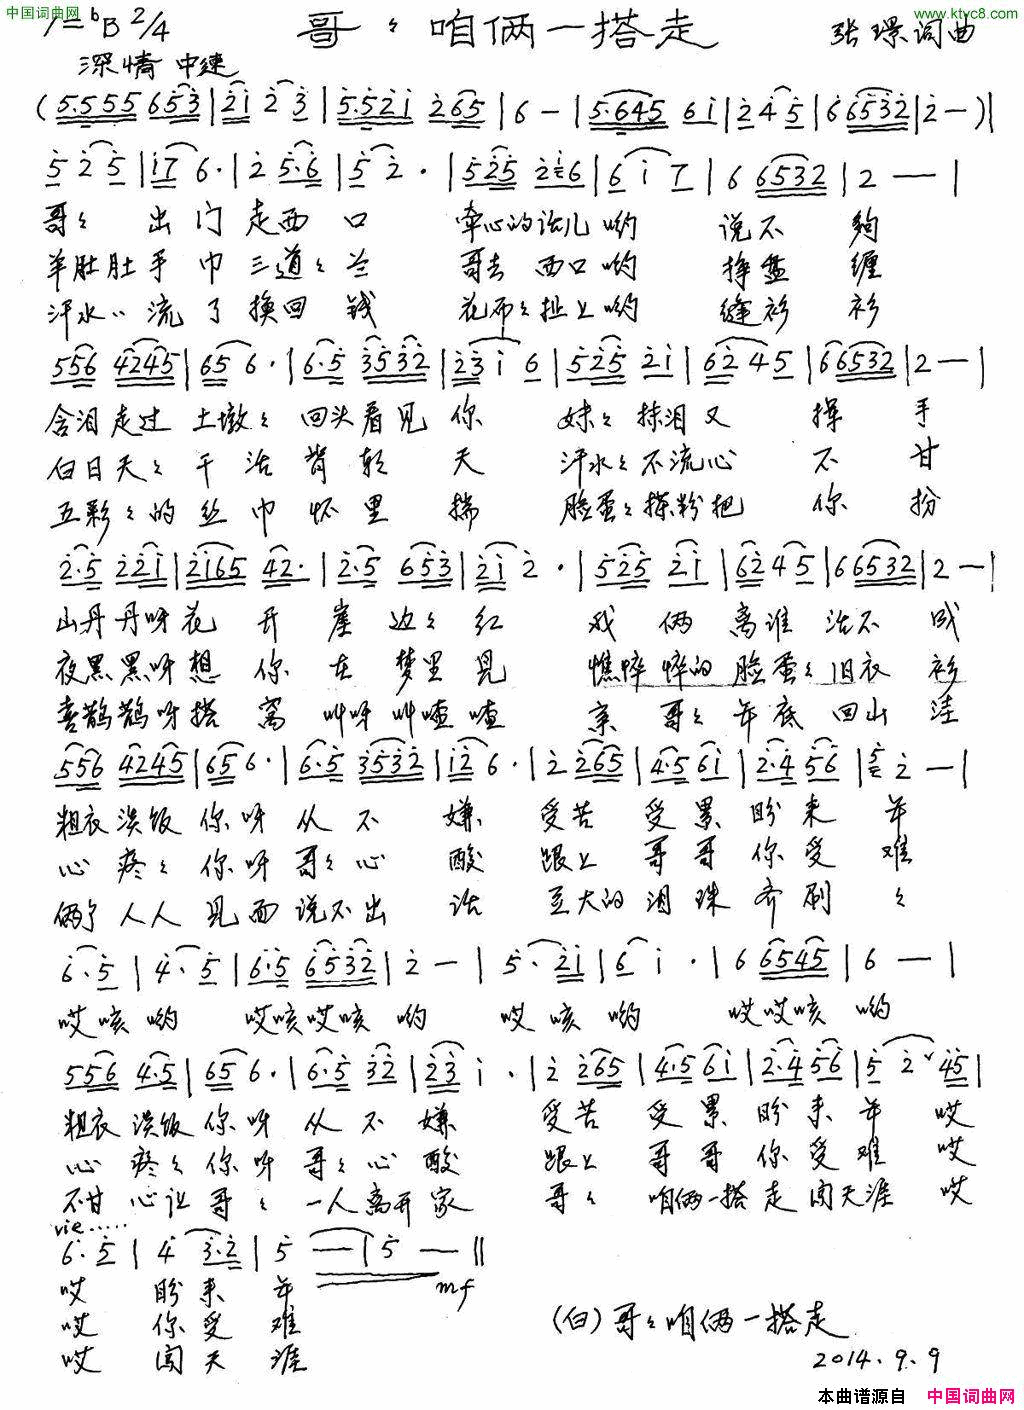 中国词曲网
www.ktyc8.com
1=♭B 2/4
哥〻咱俩一搭走
张璟词曲
深情 中速
(5.555 653|21 2 3|5.521 265|6 -|5.645 61|2 4 5|6 6532|2 -)|
5 2 5|17 6.|2 5.6|5 2.|525 216|6 1 7|6 6532|2 -|
哥〻 出门走西口 牵心的话儿哟 说不够
羊肚肚手巾三道〻兰 哥去西口哟 挣盘缠
汗水〻流了换回钱 花布〻扯上哟 缝衫衫
556 4245|65 6.|6.5 3532|23 1 6|525 21|62 45|66532|2 -|
含泪走过土墩〻回头看见你 妹〻抹泪又挥手
白日天〻干活背朝天 汗水〻不流心不甘
五彩〻的丝巾怀里揣 脸蛋〻搽粉把你扮
2.5 221|2165 42.|2.5 653|21 2.|525 21|62 45|6 6532|2 -|
山丹丹呀花开崖边〻红 我俩离谁活不成
夜黑黑呀想你在梦里见 憔悴悴的脸蛋〻旧衣衫
喜鹊鹊呀搭窝 叫呀叫喳喳 亲哥〻年底回山洼
556 4245|65 6.|6.5 3532|12 6.|2 265|4.5 61|2.4 56|5 2 -|
粗衣淡饭你呀从不嫌 受苦受累盼来年
心疼〻你呀哥〻心酸 跟上哥哥你受难
俩个人人见面说不出话 豆大的泪珠齐刷〻
6.5|4.5|6.5 6532|2 -|5.21|6 1.|6 6545|6 -|
哎咳哟 哎咳哎咳哟 哎咳哟 哎哎咳哟
556 4.5|65 6.|6.5 32|23 1.|2 265|4.5 61|2.4 56|5 2ˇ45|
粗衣淡饭你呀从不嫌 受苦受累盼来年 哎
心疼〻你呀哥〻心酸 跟上哥哥你受难 哎
不甘心让哥〻一人离开家 哥〻咱俩一搭走闯天涯 哎
6.5|4 3.2|5 -|5 -||
mf
哎 盼来年
哎 你受难
哎 闯天涯
(白)哥〻咱俩一搭走
2014.9.9
本曲谱源自 中国词曲网